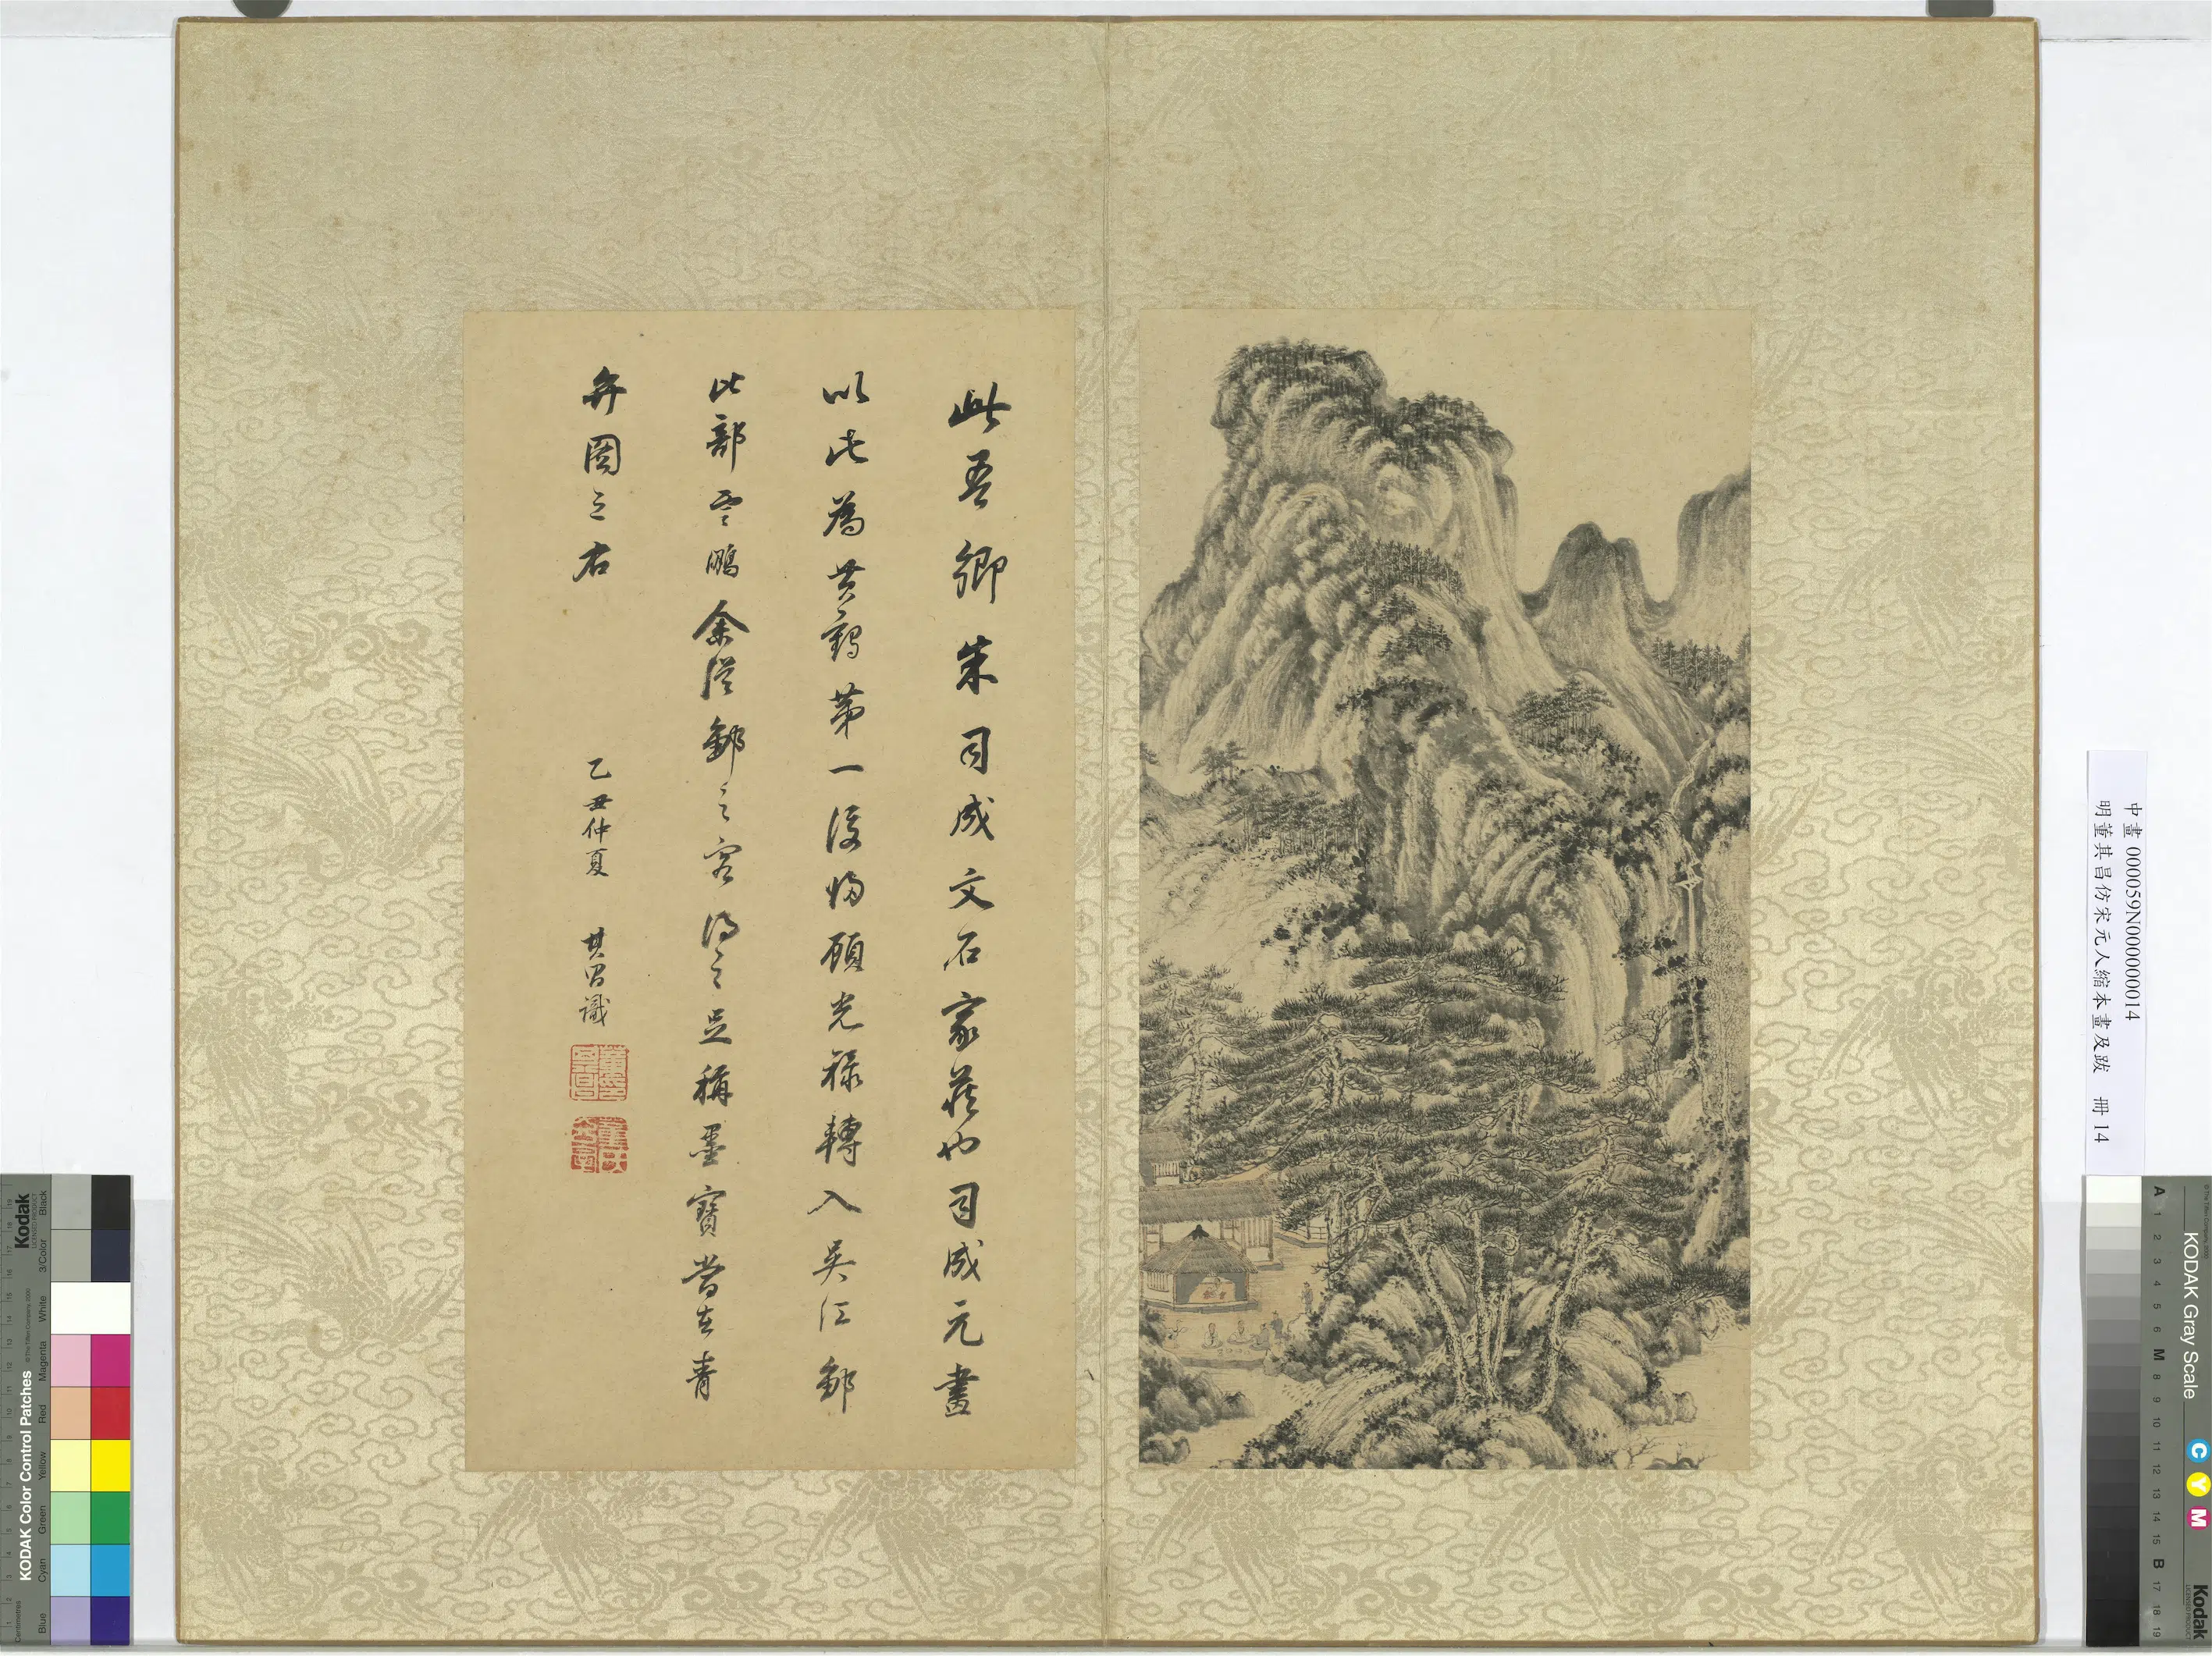 此吾鄉朱司成文石家藏也司成元畫
以此為黃鶴第一後歸顧光祿轉入吳江鄒
比部雲鵬余從鄒之客得之足稱墨寶當在青
弁圖之右
乙丑仲夏 其昌識
中畫 000059N000000014
明董其昌仿宋元人縮本畫及跋 冊 14
Kodak
KODAK Color Control Patches
Blue Cyan Green Yellow Red Magenta White 3/Color Black
Centimetres
KODAK Gray Scale
C Y M
Kodak
A 1 2 3 4 5 6 M 8 9 10 11 12 13 14 15 B 17 18 19